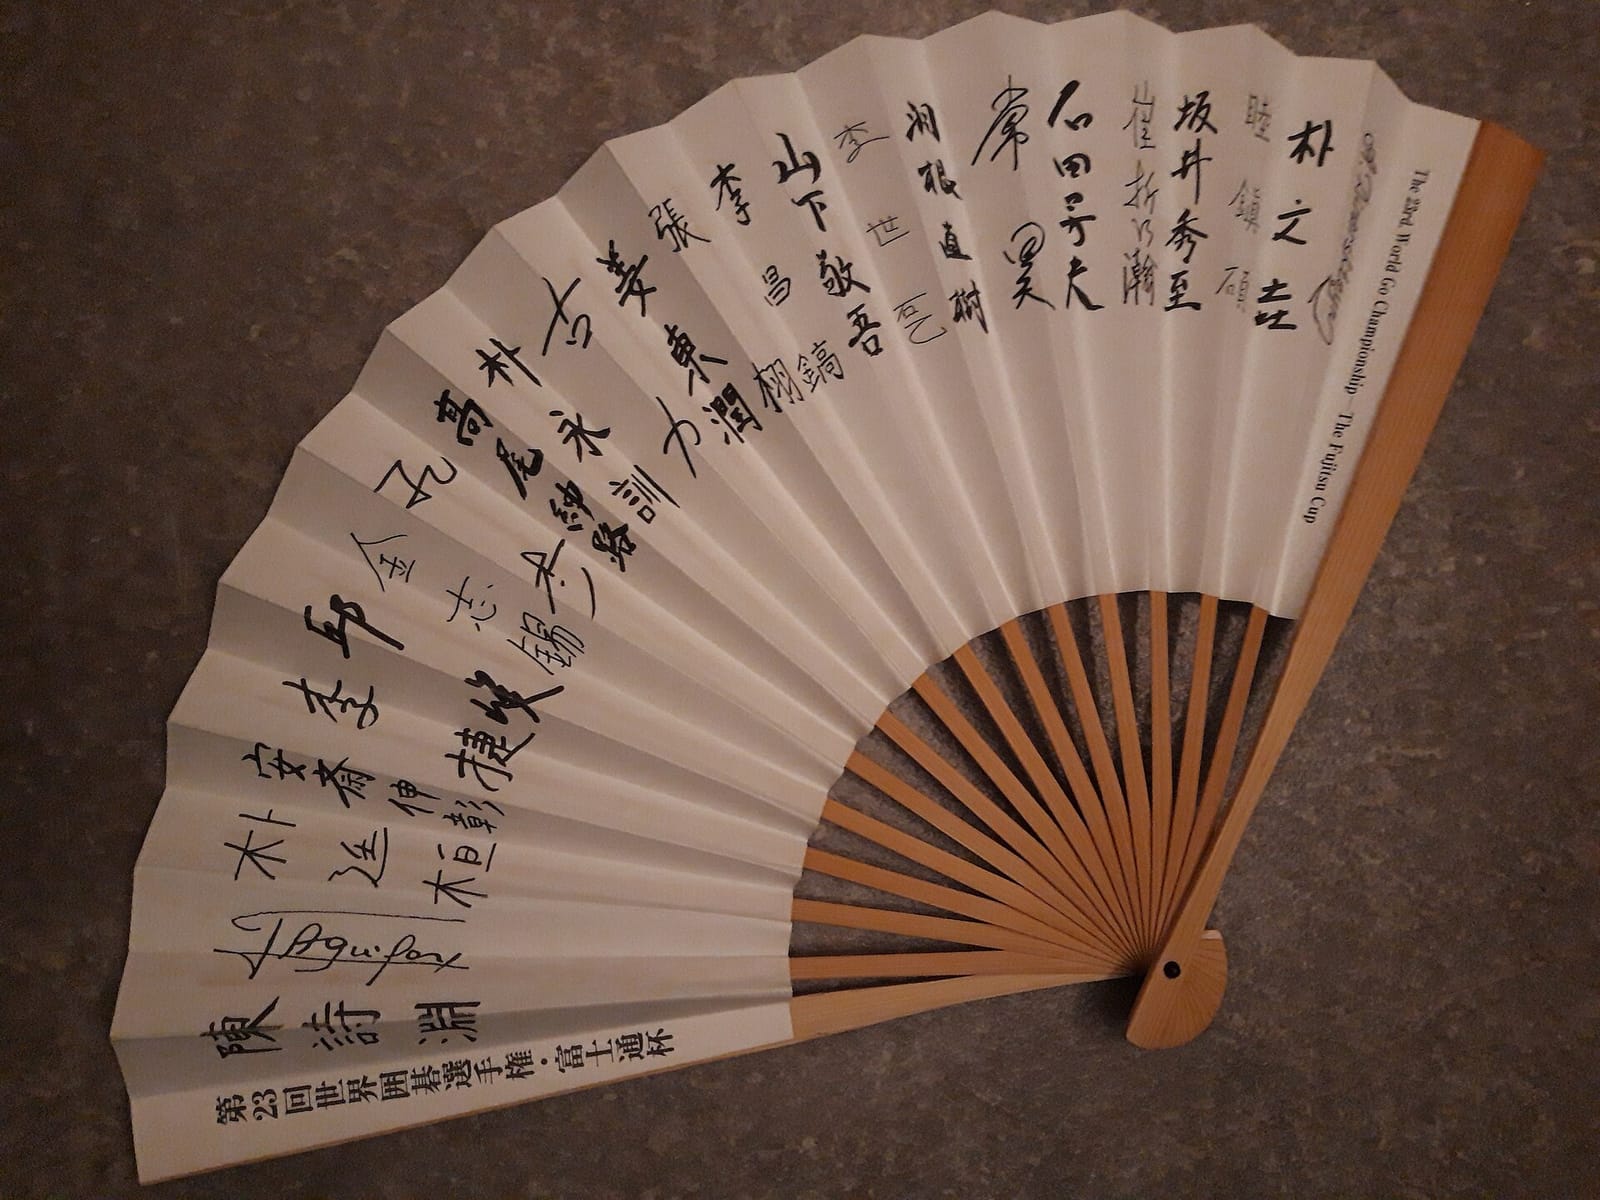 The 23rd. World Go Championship -The Fujitsu Cup
朴文垚
睦鎮碩
坂井秀至
崔哲瀚
石田芳夫
常昊
羽根直樹
李世乭
山下敬吾
李昌鎬
張栩
姜東潤
古力
朴永訓
高尾紳路
孔杰
金志錫
邱峻
李捷
安斎伸彰
朴廷桓
Aguilar
陳詩淵
第23回世界囲碁選手権・富士通杯